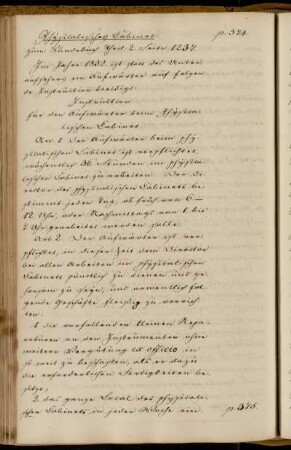 Physikalisches Cabinet. p. 324.
zum Kundebuch Theil 2. Seite 1237
Im Jahre 1832. ist von des
ein Aufwärter auf folgen
de Instruction beeidigt:
Instruction
für den Aufwärter beim Physika-
lischen Cabinet.
Art. 1 Der Aufwärter beim phy-
sikalischen Cabinet ist verpflichtet,
wöchentlich 36 Stunden im physika-
lischen Cabinet zu arbeiten. Der Di-
rector des physikalischen Cabinets be-
stimmt jeden Tag, ob früh von 6–
12 Uhr, oder Nachmittags von 1 bis
7 Uhr gearbeitet werden solle.
Art. 2. Der Aufwärter ist ver-
pflichtet, in dieser Zeit dem Director
bei allen Arbeiten im physikalischen
Cabinet pünktlich zu dienen und ge-
horsam zu seyn, und namentlich fol-
gende Geschäfte fleißig zu verrich-
ten.
1. die vorfallenden kleinen Repa-
raturen an den Instrumenten ohne
weitere Vergütung ex officio in
so weit zu beschaffen, als er dazu
die erforderlichen Fertigkeiten be-
sitze,
2. das ganze Local des physikali-
schen Cabinets in jeder Woche ein p. 325.